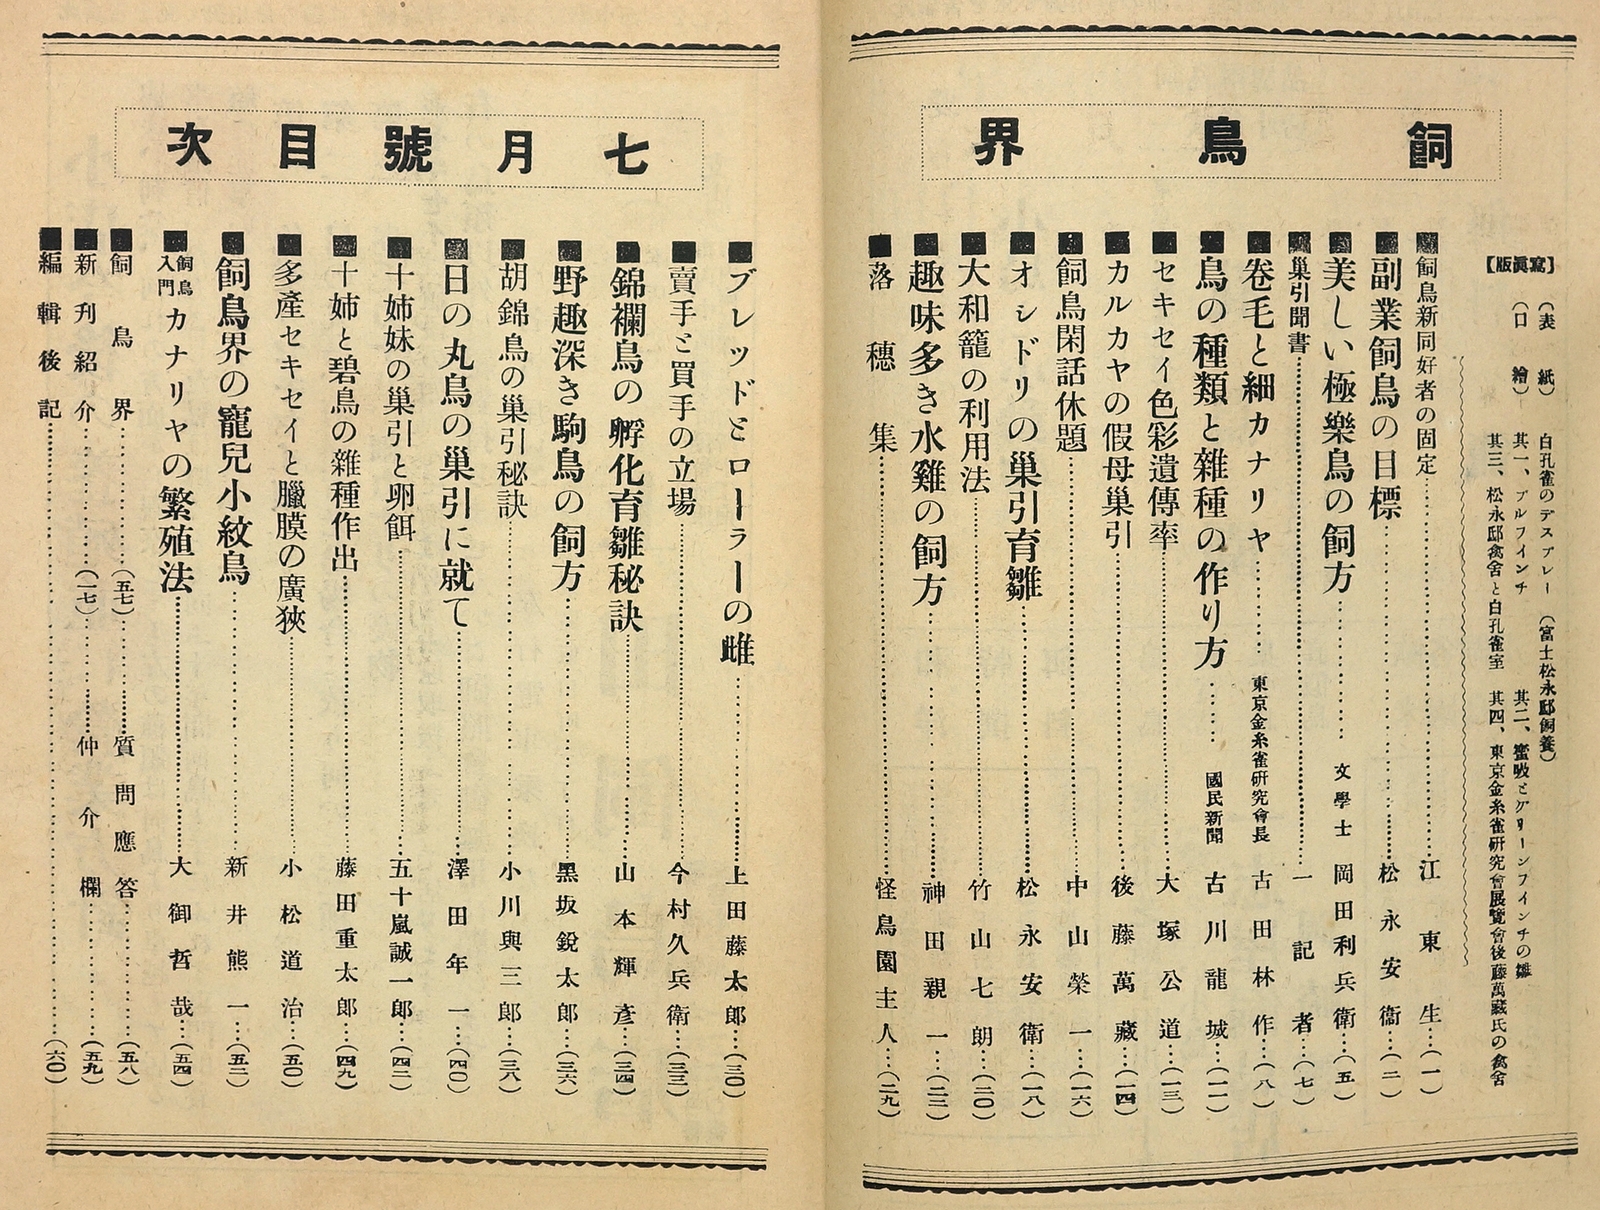 飼鳥界
【寫眞版】
(表紙) 白孔雀のデスプレー (富士松永邸飼養)
(口繪) 其一、ブルフインチ 其二、蜜吸とグリーンフインチの雛
其三、松永邸禽舍と白孔雀室 其四、東京金糸雀研究會展覽會後藤萬藏氏の禽舍
■飼鳥新同好者の固定……江東生…(一)
■副業飼鳥の目標……松永安衞…(二)
■美しい極樂鳥の飼方……文學士 岡田利兵衞…(五)
■巢引聞書……一記者…(七)
■卷毛と細カナリヤ……東京金糸雀研究會長 古田林作…(八)
■鳥の種類と雜種の作り方……國民新聞 古川龍城…(一一)
■セキセイ色彩遺傳率……大塚公道…(一三)
■カルカヤの假母巢引……後藤萬藏…(一四)
■飼鳥閑話休題……中山榮一…(一六)
■オシドリの巢引育雛……松永安衞…(一八)
■大和籠の利用法……竹山七朗…(二〇)
■趣味多き水雞の飼方……神田親一…(二三)
■落穗集……怪鳥園主人…(二九)
七月號目次
■ブレッドとローラーの雌……上田藤太郎…(三〇)
■賣手と買手の立場……今村久兵衞…(三三)
■錦襴鳥の孵化育雛秘訣……山本輝彥…(三四)
■野趣深き駒鳥の飼方……黑坂銳太郎…(三六)
■胡錦鳥の巢引秘訣……小川與三郎…(三八)
■日の丸鳥の巢引に就て……澤田年一…(四〇)
■十姉妹の巢引と卵餌……五十嵐誠一郎…(四二)
■十姉と碧鳥の雜種作出……藤田重太郎…(四九)
■多產セキセイと臘膜の廣狹……小松道治…(五〇)
■飼鳥界の寵兒小紋鳥……新井熊一…(五二)
■飼鳥入門カナリヤの繁殖法……大御哲哉…(五四)
■飼鳥界……(五七)……質問應答……(五八)
■新刋紹介……(一七)……仲介欄……(五九)
■編輯後記……(六〇)